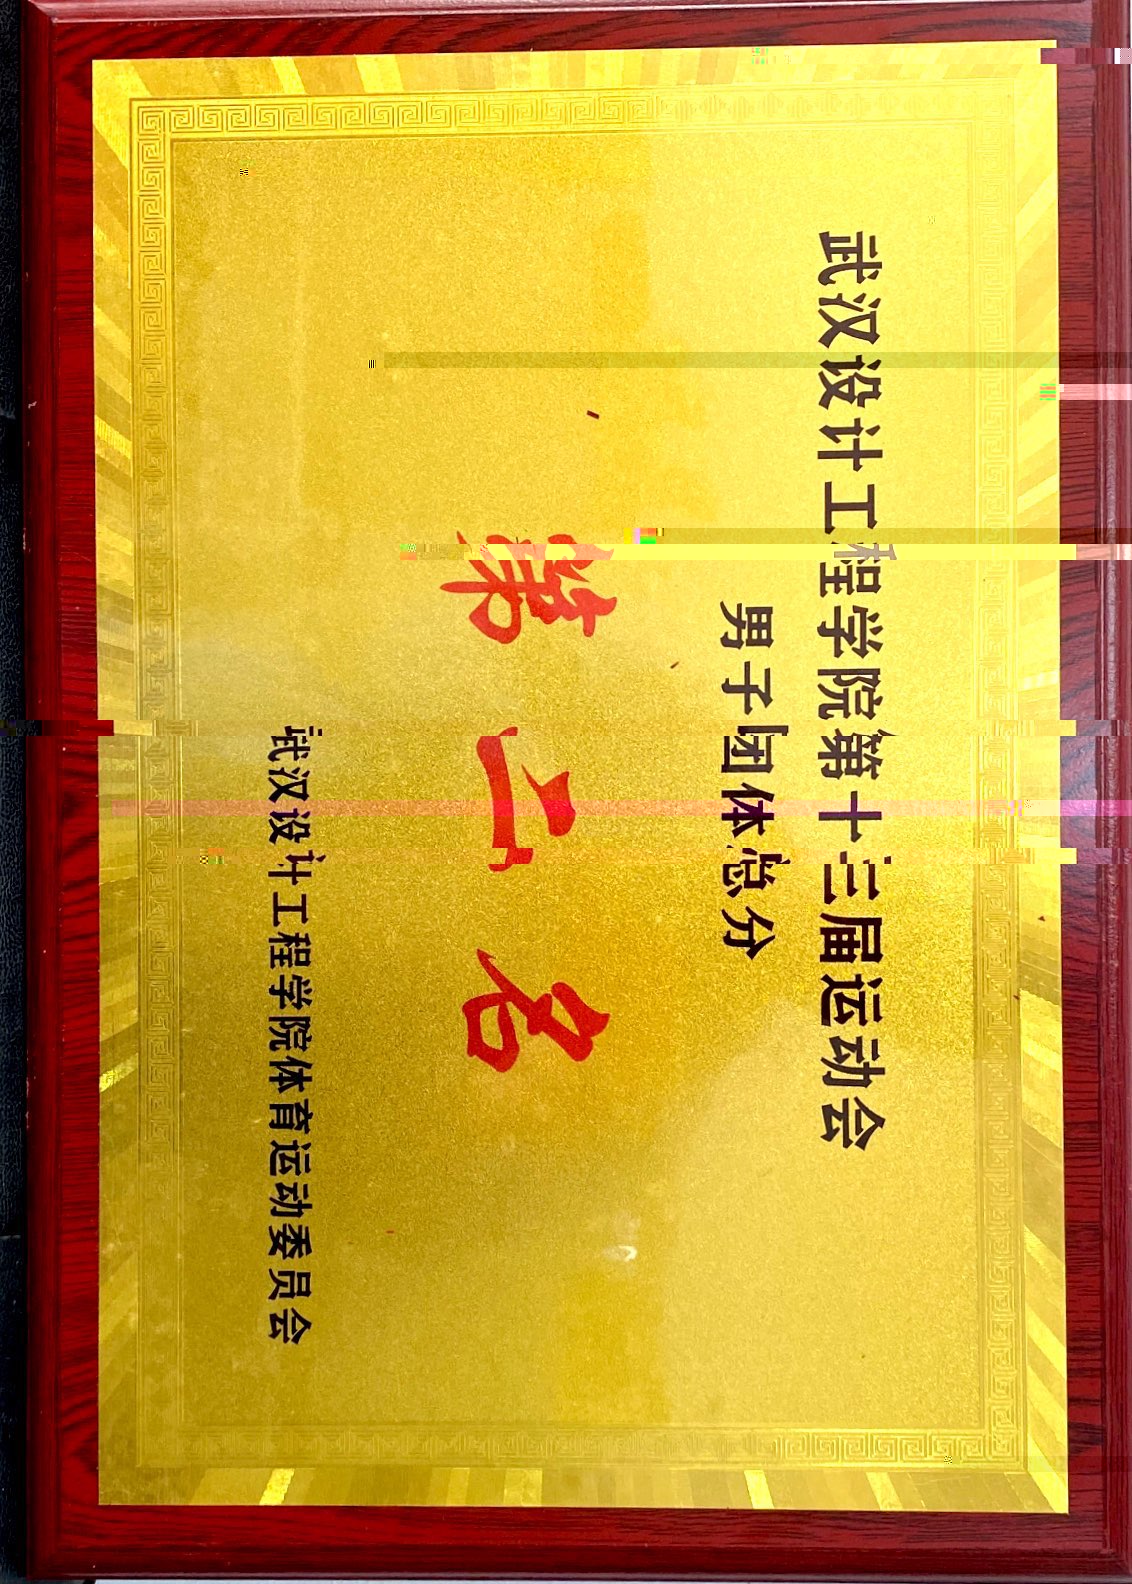 武汉设计工程学院第十三届运动会
男子团体总分
第二名
武汉设计工程学院体育运动委员会